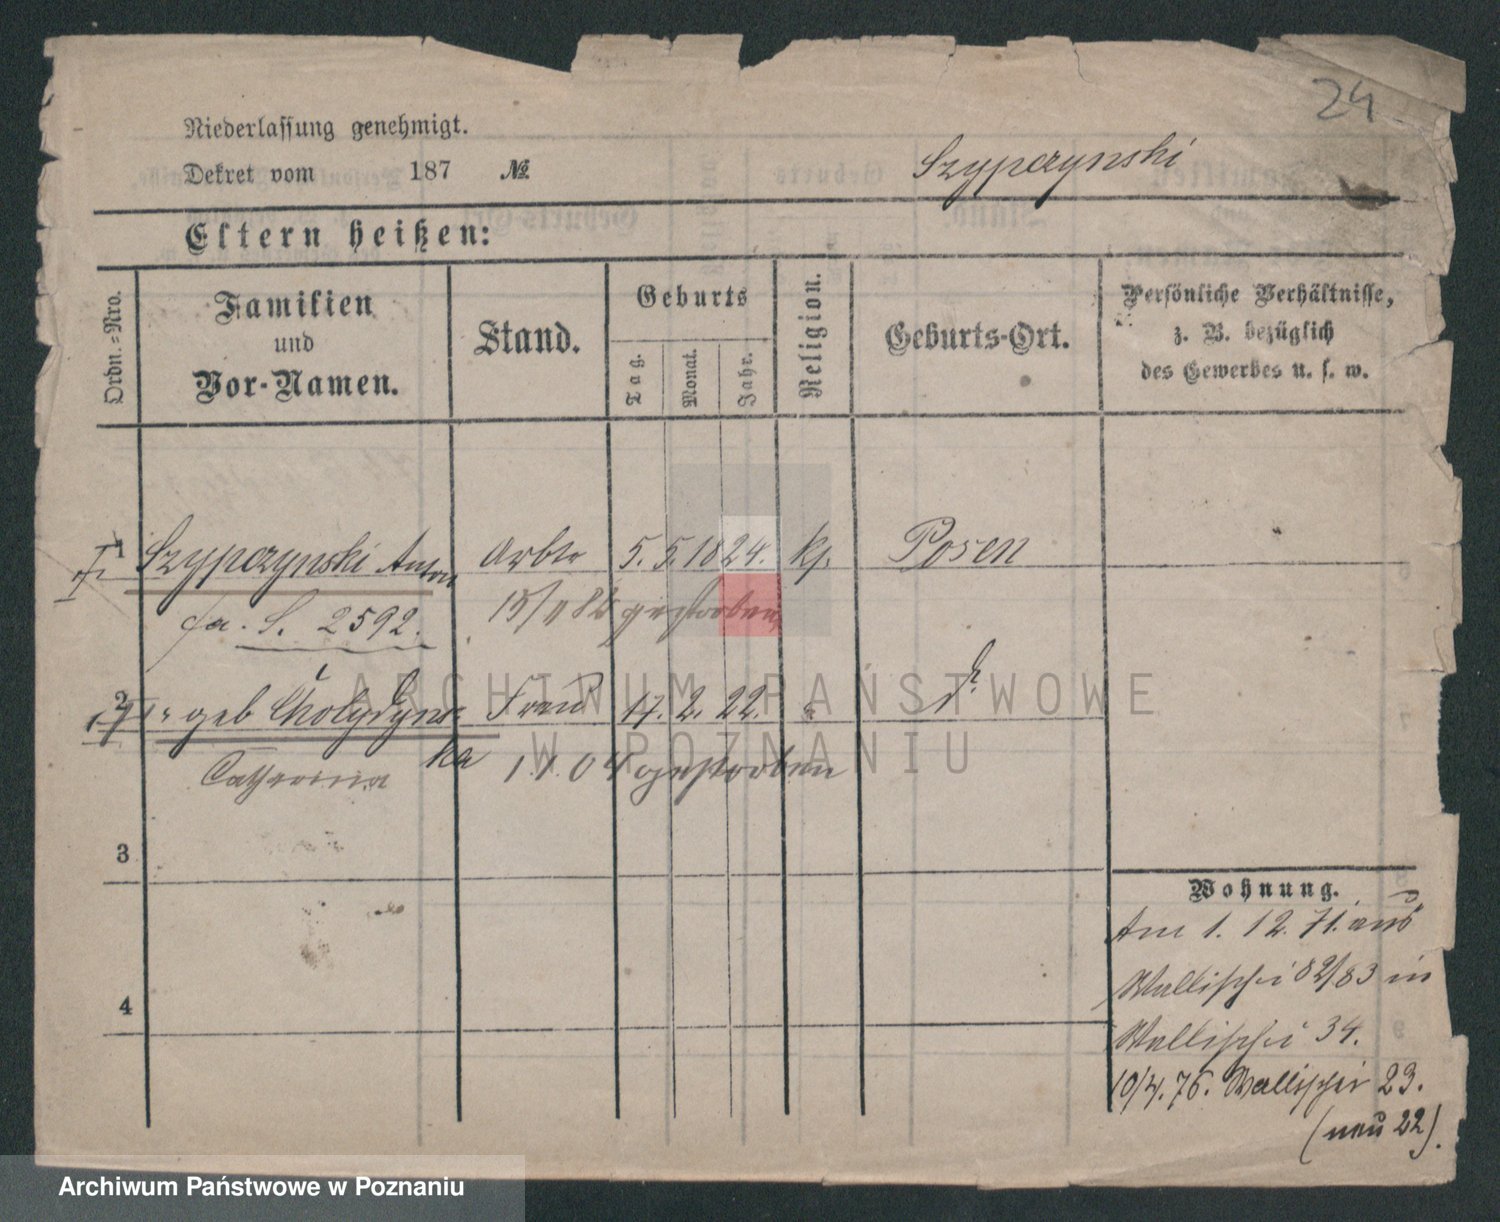 24
Niederlassung genehmigt.
Dekret vom 187 №
Szypczynski
Eltern heißen:
Ordn.=Nro.
Familien
und
Vor-Namen.
Stand.
Geburts
Tag.
Monat.
Jahr.
Religion.
Geburts-Ort.
Persönliche Verhältnisse,
z. B. bezüglich
des Gewerbes u. s. w.
1 Szypczynski Anton Arbtr 5. 5. 1824. kf. Posen
fa. S. 2592. gestorben
2 geb Frau 17. 2. 22. " dt.
ka 1. 1. 04 gestorben
Catharina
3
4
Wohnung.
Am 1. 12. 71. aus
Wallischei 82/83 in
Wallischei 34.
10/4. 76. Wallischei 23.
(neu 22).
ARCHIWUM PAŃSTWOWE
W POZNANIU
Archiwum Państwowe w Poznaniu